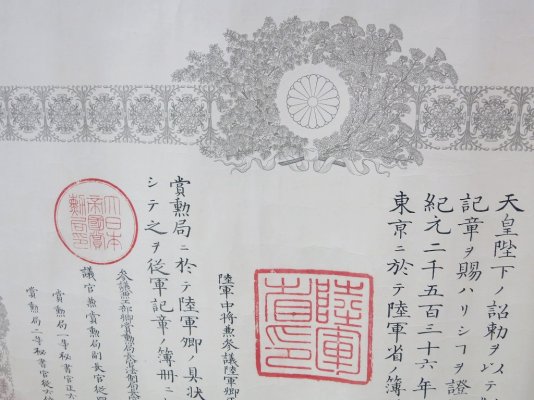 天皇陛下ノ詔勅ヲ
記章ヲ賜ハリシヿヲ證
紀元二千五百三十六年
東京ニ於テ陸軍省ノ簿
陸軍省印
陸軍中將兼參議陸軍卿
賞勲局ニ於テ陸軍卿ノ具狀
シテ之ヲ從軍記章ノ簿册ニ
大日本帝國賞勲局印
議官兼賞勲局副長官從四
賞勲局一等秘書官正六
賞勲局二等秘書官從六